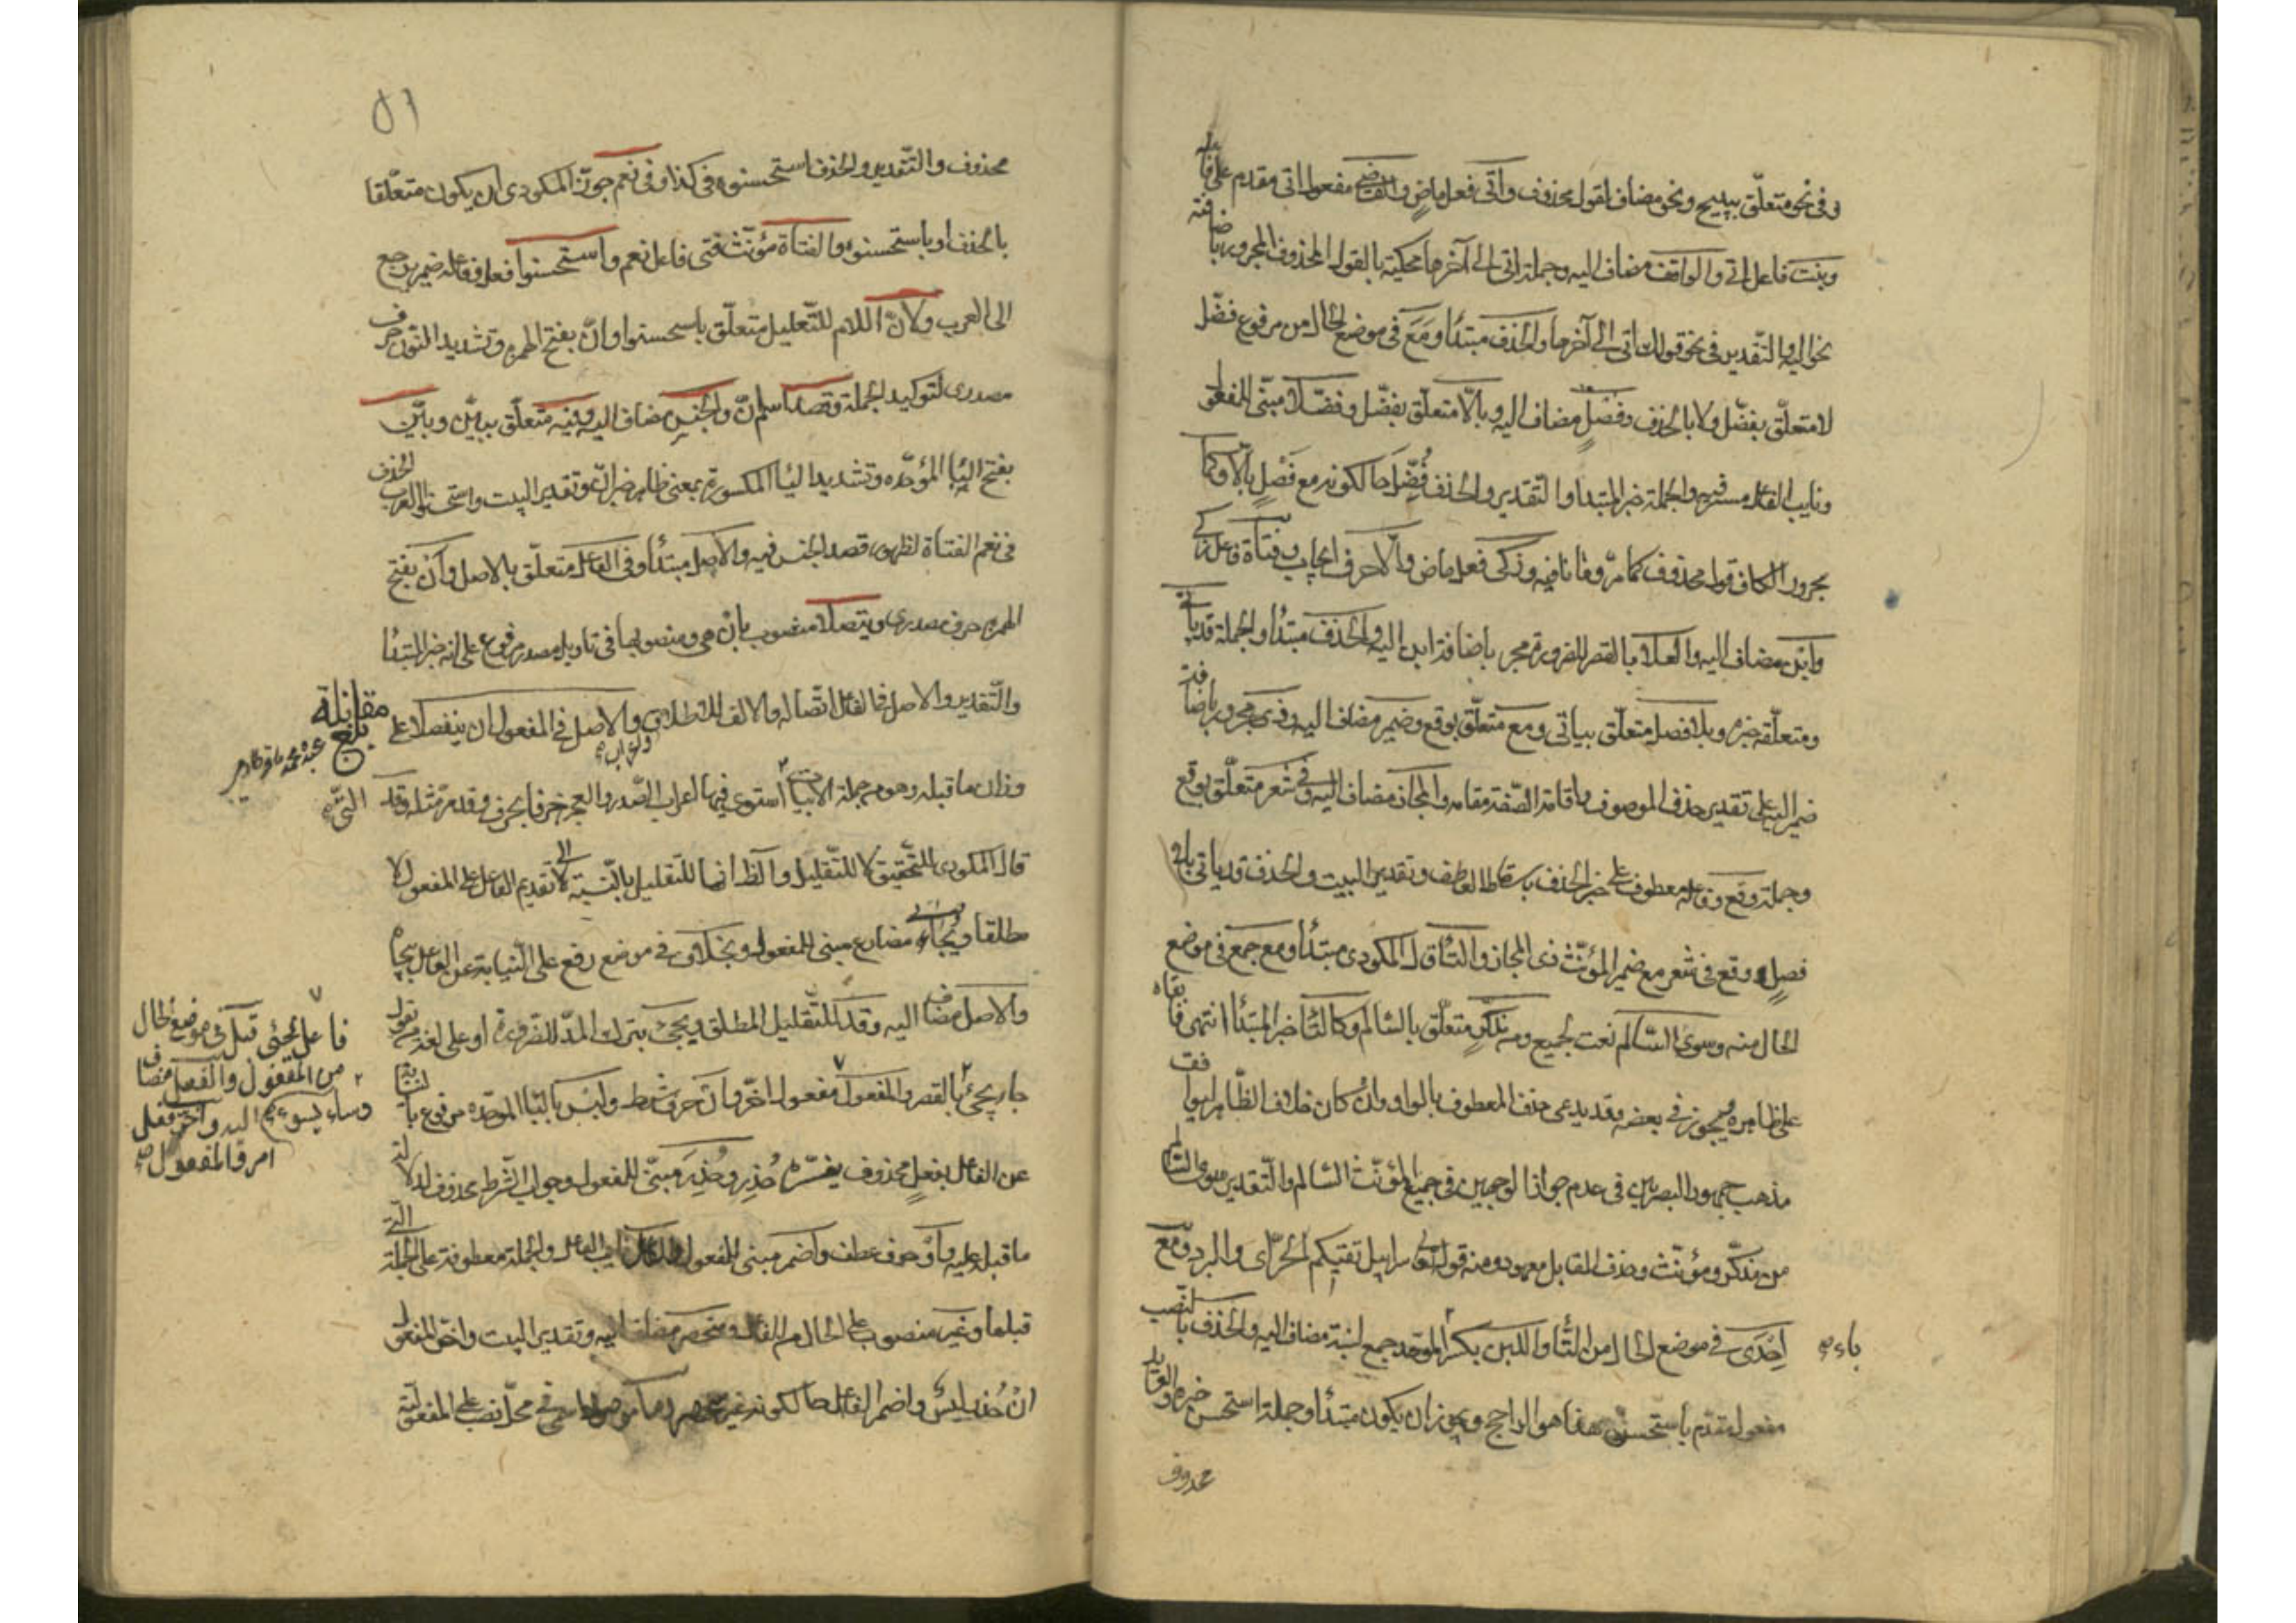 وفي نحو متعلّق بيبيح ونحو مضاف لقول محذوف وأتى فعل ماض والقاضي مفعول اتى مقدم على فاعله
وبنت فاعل اتى والواقف مضاف اليه وجملة اتى الى آخرها محكية بالقول المحذوف المجرور باضافته
نحو اليه والتقدير في نحو قولك اتى الى آخرها والحذف مبتدأ ومع في موضع الحال من مرفوع فضّل
لا متعلّق بفضّل ولا بالحذف وفصل مضاف اليه وبالّا متعلّق بفضّل وفضّلا مبنيّ للمفعول
ونايب الفاعل مستتر فيه والجملة خبر المبتدا والتقدير والحذف فُضِّل حالكونه مع فصل بالّا وكما
مجرور الكاف قول محذوف كما مرّ وما نافيه وزكى فعل ماض والّا حرف ايجاب وفتاة فاعل زكى
وابن مضاف اليه والعلا بالقصر للضرورة مجرور باضافة ابن اليه والحذف مبتدأ والجملة قد يأتي
ومتعلّقه خبره وبلا فصل متعلّق بيأتي ومع متعلّق بوقع وضمير مضاف اليه وذي مجرور باضافة
ضمير اليه على تقدير حذف الموصوف واقامة الصّفة مقامه والمجاز مضاف اليه وفي شعر متعلّق بوقع
وجملة وقع وفاعله معطوف على خبر الحذف باسقاط العاطف وتقدير البيت والحذف قد يأتي بلا
فصل ووقع في شعر مع ضمير المؤنّث ذي المجاز والتّا قال المكودي مبتدأ ومع جمع في موضع
الحال منه وسوى السّالم نعت لجمع ومن مذكّر متعلّق بالسّالم وكالتّا خبر المبتدأ انتهى فابقاه
على ظاهره ويجوز في بعضه وقد يدعى حذف المعطوف بالواو وان كان خلاف الظّاهر ليوافق
مذهب جمهور البصريين في عدم جواز الوجهين في جمع المؤنّث السّالم والتّقدير سوى السّالم
من مذكّر ومؤنّث وحذف المقابل معهود ومنه قوله تعالى سرابيل تقيكم الحرّ اى والبرد ومع
اِحْدَى في موضع الحال من التّا واللبن بكسر الموحّدة جمع لبنة مضاف اليه والحذف بالنّصب
باء صح
مفعول مقدّم باستحسنوا هذا هو الراجح ويجوز ان يكون مبتدأ وجملة استحسنوا خبره والعايد
محذوف
٥١
محذوف والتّقدير والحذف استحسنوه في كذا وفي نعم جوّز المكودي ان يكون متعلّقا
بالحذف او باستحسنوا والفتاة مؤنّث فتى فاعل نعم واستحسنوا فعل وفاعله ضمير يرجع
الى العرب ولانّ اللام للتّعليل متعلّق باستحسنوا وانّ بفتح الهمزة وتشديد النّون حرف
مصدرى لتوكيد الجملة وقصد اسم انّ والجنس مضاف اليه وفيه متعلّق ببيّن وبيّن
بفتح الباء الموحّده وتشديد الياء المكسورة بمعنى ظاهر خبر انّ وتقدير البيت واستحسنوا العرب الحذف
في نعم الفتاة لظهور قصد الجنس فيه والاصل مبتدأ وفي الفاعل متعلّق بالاصل وأن بفتح
الهمزة حرف مصدرى ويتّصلا منصوب بأن هى ومنصوبها في تاويل مصدر مرفوع على انه خبر المبتدأ
والتّقدير والاصل في الفاعل اتّصاله والالف للاطلاق والاصل في المفعول ان ينفصلا على
وزان ما قبله وهو من جملة الابيات استوى فيها اعراب الصّدر والعجز حرفا بحرف وقد مرّ مثله وقد
بلغ مقابلة
قال المكودى للتّحقيق لا للتّقليل والظّ انها للتّقليل بالنّسبة الى تقديم الفاعل على المفعول لا
مطلقا ويُجَاء مضارع مبني للمفعول وبخلاف في موضع رفع على النّيابة عن الفاعل بيجاء
والاصل مضاف اليه وقد للتّقليل المطلق ويجى بترك المدّ للضّرورة او على لغة من يقول
جا يجى بالقصر والمفعول مفعول اخّر وان حرف شرط ولبس بالباء الموحّده مرفوع بالنّيابة
عن الفاعل بفعل محذوف يفسّره حُذِر وحُذِرَ مبنيّ للمفعول وجواب الشّرط محذوف لدلالة
ما قبله عليه وأو حرف عطف وأضمر مبنى للمفعول والفاعل نايب الفاعل والجملة معطوفة على الجملة الّتي
قبلها وغير منصوب على الحال من الفاعل ومنحصر مضاف اليه وتقدير البيت واخّر المفعول
ان حُذر لبس واضمر الفاعل حالكونه غير منحصر وما موصول اسمى في محلّ نصب على المفعوليّة
فاعل يجئى قبل في موضع الحال
من المفعول والفعل مضاف
اليه وأخّر فعل
امر والمفعول صح